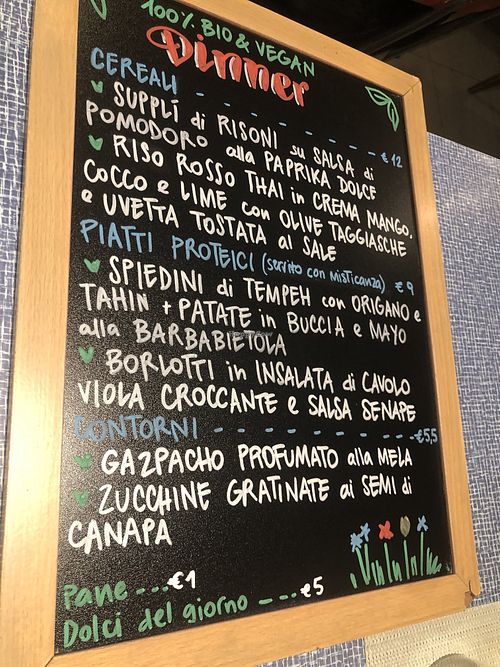 100% BIO & VEGAN
Dinner
CEREALI - - - - - - - - - € 12
SUPPLÌ di RISONI su SALSA di
POMODORO alla PAPRIKA DOLCE
RISO ROSSO THAI in CREMA MANGO,
COCCO e LIME con OLIVE TAGGIASCHE
e UVETTA TOSTATA al SALE
PIATTI PROTEICI (servito con misticanza) € 9
SPIEDINI di TEMPEH con ORIGANO e
TAHIN + PATATE in BUCCIA e MAYO
alla BARBABIETOLA
BORLOTTI in INSALATA di CAVOLO
VIOLA CROCCANTE e SALSA SENAPE
CONTORNI - - - - - - - - - - - €5,5
GAZPACHO PROFUMATO alla MELA
ZUCCHINE GRATINATE ai SEMI di
CANAPA
Pane - - - €1
Dolci del giorno - - - €5